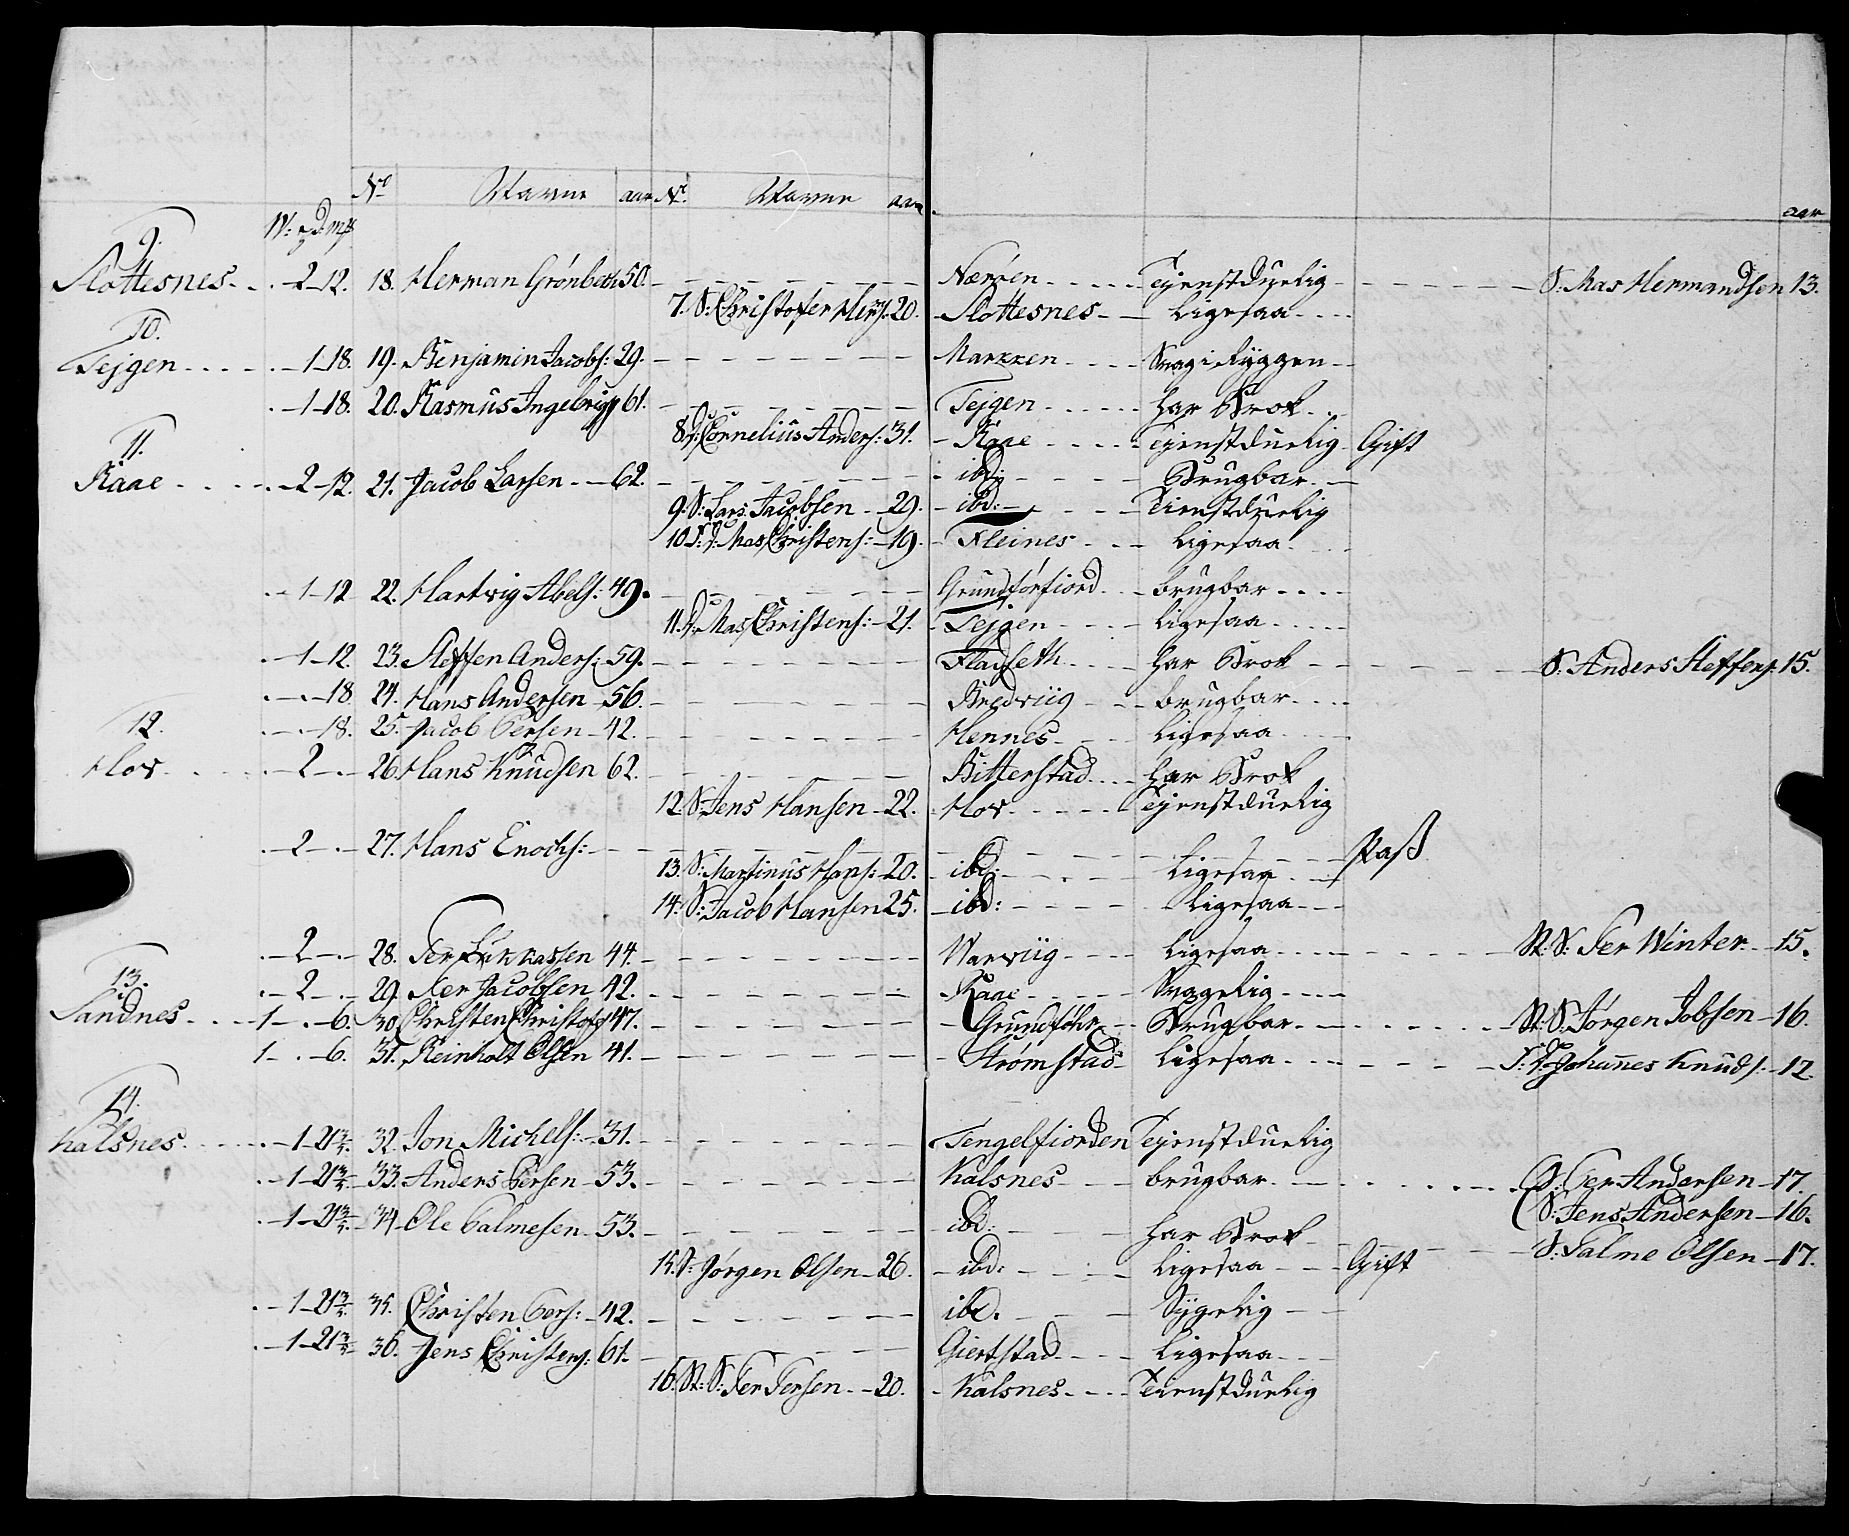 No Navne aar No Navne aar aar
W: pd: mk
9.
Slottesnes - 2-12. 18. Herman Grønbech 50. Nerøen Tjenstduelig S. Mas Hermandsen 13.
7. S: Christofer Herms: 20. Slottesnes Ligesaa
10.
Tejgen - 1-18. 19. Benjamin Jacobs: 29. Svag i Ryggen
- 1-18. 20. Rasmus Ingebrigts 61. Tejgen har Brok
8. Cornelius Anders: 31. Raae Tjenstduelig Gift
11.
Raae - 2-12. 21. Jacob Larsen 62. ibd: Brugbar
9. S: Lars Jacobsen 29. ibd: Tienstduelig
10. Mas Christens: 19. Fleines Ligesaa
- 1-12 22. Hartvig Abels: 49. Grundførfiord brugbar
11. Mas Christens: 21. Tejgen Ligesaa
- 1-12. 23. Steffen Anders: 59. Fladseth har Brok S. Anders Steffens 15.
- 18 24. Hans Andersen 56. Bredviig brugbar
12. - 18. 25. Jacob Persen 42. Hennes Ligesaa
Hov - 2 - 26. Hans Knudsen 62. Bitterstad har Brok
12. S: Jens Hansen 22. Hov Tjenstduelig
- 2 - 27. Hans Enochs: Paß
13. S: Martinus Hans: 20. ibd: Ligesaa
14. S: Jacob Hansen 25. ibd: Ligesaa
- 2 - 28. Per Lukkassen 44. Warviig Ligesaa St: S: Per Winter 15.
13. - 2 - 29. Per Jacobsen 42. Raae Svagelig
Sandnes 1 - 6. 30. Christen Christofs 47. Grundføhr Brugbar St: S: Jørgen Jobsen 16.
1 - 6. 31. Reinholt Olsen 41. Strømstad Ligesaa Johannes Knuds: 12.
14.
Kalsnes - 1-21 3/5. 32. Jon Michels: 31. Tengelfiorden Tjenstduelig
- 1-21 3/5 33. Anders Persen 53. Kalsnes brugbar S: Per Andersen 17.
S: Jens Andersen 16.
- 1-21 3/5. 34 Ole Palmesen 53. ibd: har Brok S: Palme Olsen 17.
15. S: Jørgen Olsen 26. ibd: Ligesaa Gift
- 1-21 3/5. 35. Christen Pers: 42. ibd. Sygelig
- 1-21 3/5 36. Jens Christens: 61. Giertstad Ligesaa
16. St: S: Per Persen 20. Kalsnes Tienstduelig